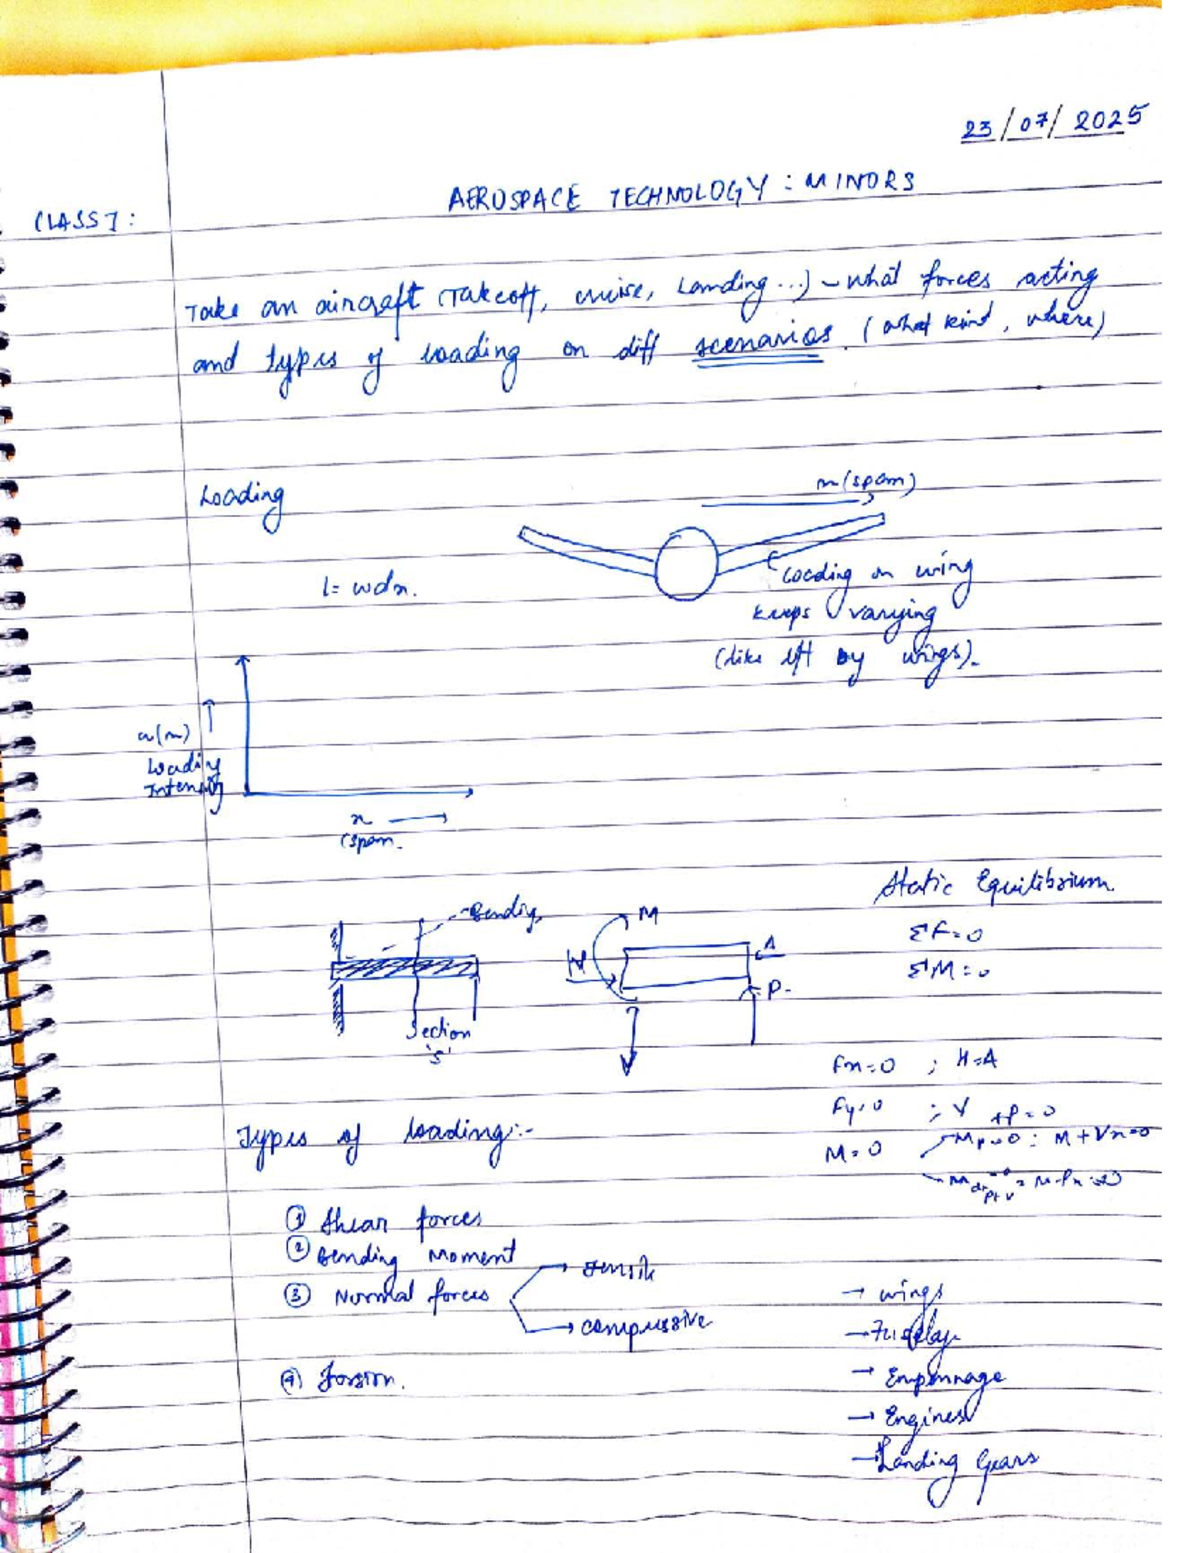 23/07/2025
AEROSPACE TECHNOLOGY : MINORS
CLASS 1 :
Take an aircraft (Takeoff, cruise, Landing...) - what forces acting
and types of loading on diff scenarios. (what kind, where)
Loading
x (span)
l = wdx.
Loading on wing
keeps varying
(like lift by wings).
w(x)
Loading
Intensity
x
(span.
Static Equilibrium.
Bending
M
ΣF=0
A
H
ΣM=0
P.
Section
'S'
Fx=0 ; H=A
Fy=0 ; V+P=0
Types of loading:-
M=0
M P=0 : M+Vx=0
① Shear forces
② Bending Moment
③ Normal forces
→ tensile
→ compressive
④ Torsion.
→ wings
→ Fuselage
→ Empennage
→ Engines
→ Landing Gears